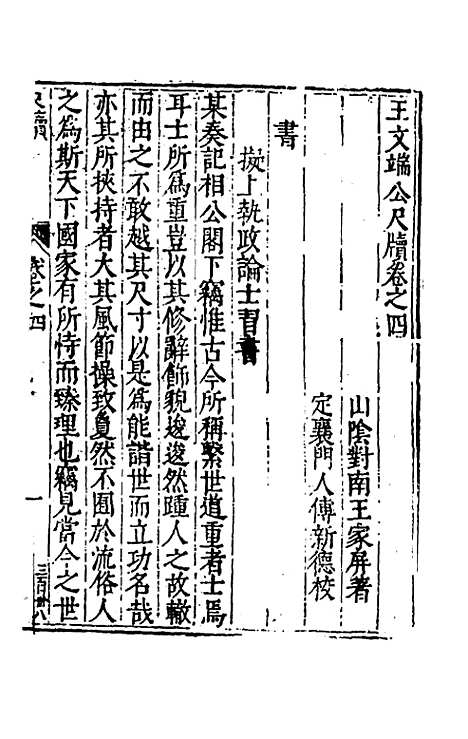 王文端公尺牘卷之四
山陰對南王家屏著
定襄門人傅新德校
書
擬上執政論士習書
某奏記相公閣下竊惟古今所稱繫世道重者士焉
耳士所為重豈以其修辭飾貌逡逡然踵人之故轍
而由之不敢越其尺寸以是為能諧世而立功名哉
亦其所挾持者大其風節操致敻然不囿於流俗人
之為斯天下國家有所恃而臻理也竊見當今之世
尺牘
卷之四
一
三百卅八